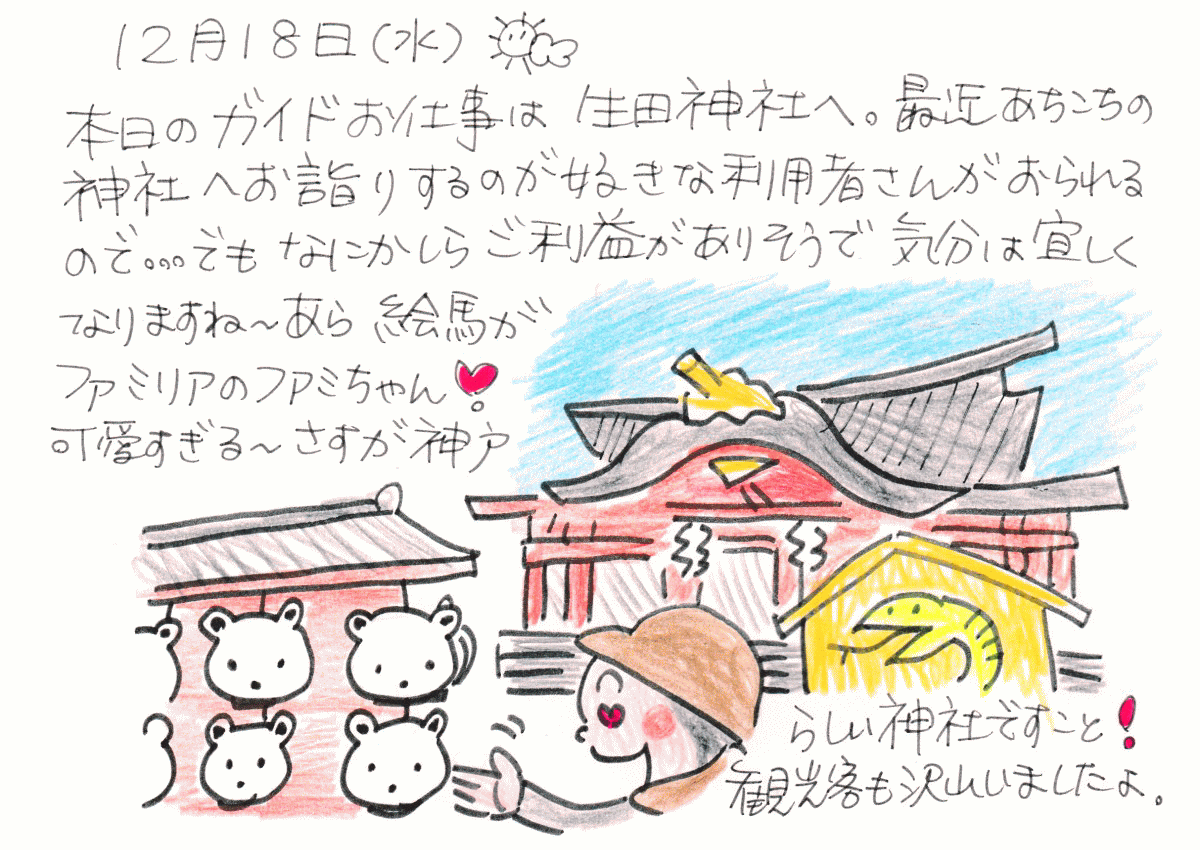 12月18日(水)
本日のガイドお仕事は 生田神社へ。最近あちこちの
神社へお詣りするのが好きな利用者さんがおられる
ので...でも なにかしらご利益がありそうで 気分は宜しく
なりますね〜あら 絵馬が
ファミリアのファミちゃん!
可愛すぎる〜さすが神戸
らしい神社ですこと!
観光客も沢山いましたよ。